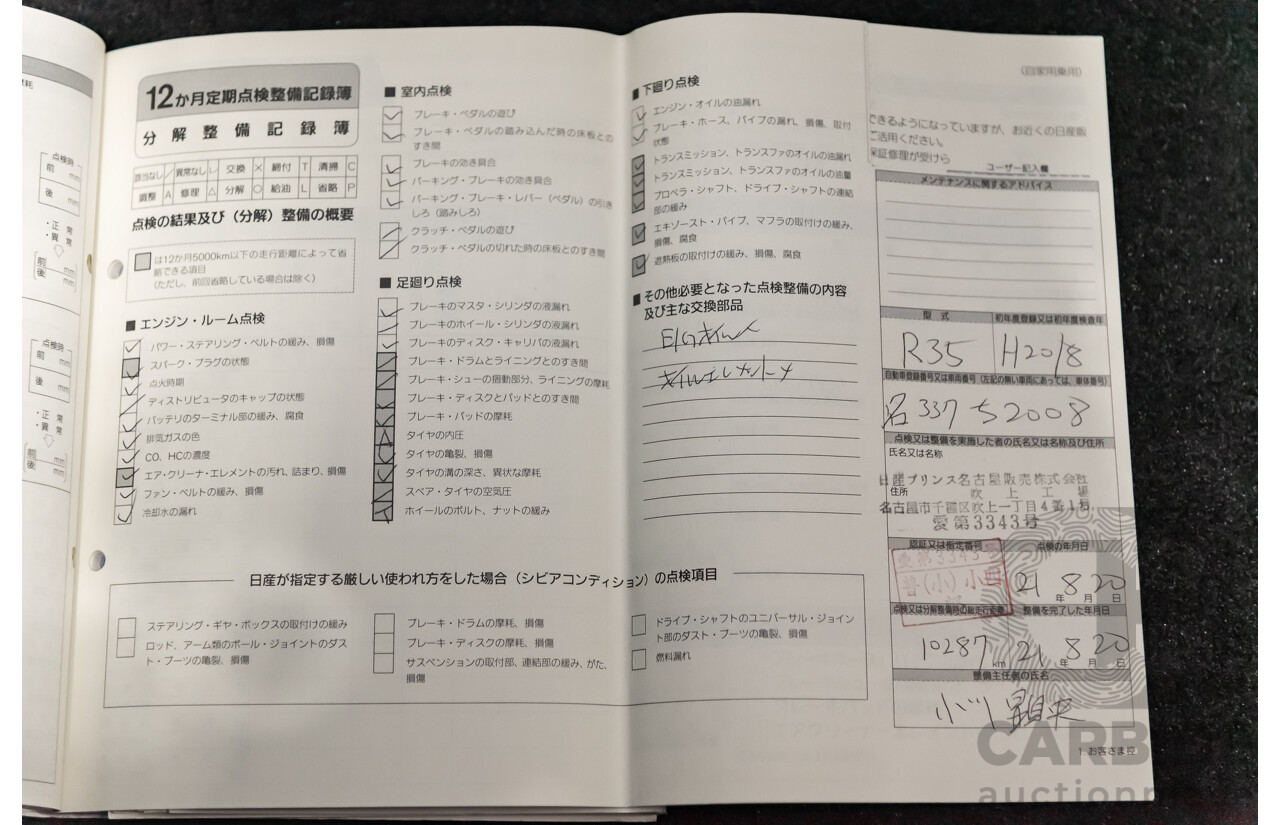 点検時
前 mm
後 mm
・正 常
・異 常
前 mm
後 mm
点検時
前 mm
後 mm
・正 常
・異 常
前 mm
後 mm
12か月定期点検整備記録簿
分解整備記録簿
該当なし / 異常なし レ 交換 × 締付 T 清掃 C
調整 A 修理 △ 分解 ○ 給油 L 省略 P
点検の結果及び(分解)整備の概要
は12か月5000km以下の走行距離によって省
略できる項目
(ただし、前回省略している場合は除く)
■ エンジン・ルーム点検
パワー・ステアリング・ベルトの緩み、損傷
スパーク・プラグの状態
点火時期
ディストリビュータのキャップの状態
バッテリのターミナル部の緩み、腐食
排気ガスの色
CO、HCの濃度
エア・クリーナ・エレメントの汚れ、詰まり、損傷
ファン・ベルトの緩み、損傷
冷却水の漏れ
■ 室内点検
ブレーキ・ペダルの遊び
ブレーキ・ペダルの踏み込んだ時の床板との
すき間
ブレーキの効き具合
パーキング・ブレーキの効き具合
パーキング・ブレーキ・レバー(ペダル)の引き
しろ(踏みしろ)
クラッチ・ペダルの遊び
クラッチ・ペダルの切れた時の床板とのすき間
■ 足廻り点検
ブレーキのマスタ・シリンダの液漏れ
ブレーキのホイール・シリンダの液漏れ
ブレーキのディスク・キャリパの液漏れ
ブレーキ・ドラムとライニングとのすき間
ブレーキ・シューの摺動部分、ライニングの摩耗
ブレーキ・ディスクとパッドとのすき間
ブレーキ・パッドの摩耗
タイヤの内圧
タイヤの亀裂、損傷
タイヤの溝の深さ、異状な摩耗
スペア・タイヤの空気圧
ホイールのボルト、ナットの緩み
■ 下廻り点検
エンジン・オイルの油漏れ
ブレーキ・ホース、パイプの漏れ、損傷、取付
状態
トランスミッション、トランスファのオイルの油漏れ
トランスミッション、トランスファのオイルの油量
プロペラ・シャフト、ドライブ・シャフトの連結
部の緩み
エキゾースト・パイプ、マフラの取付けの緩み、
損傷、腐食
遮熱板の取付けの緩み、損傷、腐食
■ その他必要となった点検整備の内容
及び主な交換部品
E/Gオイル
オイルエレメント
(自家用乗用)
できるようになっていますが、お近くの日産販
ご活用ください。
保証修理が受けら
ユーザー記入欄
メンテナンスに関するアドバイス
型 式 初年度登録又は初年度検査年
R35 H20/8
自動車登録番号又は車両番号(左記の無い車両にあっては、車体番号)
名 337 ち 2008
点検又は整備を実施した者の氏名又は名称及び住所
氏名又は名称
日産プリンス名古屋販売株式会社
住所 吹上工場
名古屋市千種区吹上一丁目4番1号
愛第3343号
認証又は指定番号 点検の年月日
愛第3343号
普(小)
21 年 8 月 20 日
点検又は分解整備時の総走行距離 整備を完了した年月日
10287 km 21 年 8 月 20 日
整備主任者の氏名
日産が指定する厳しい使われ方をした場合(シビアコンディション)の点検項目
ステアリング・ギヤ・ボックスの取付けの緩み
ロッド、アーム類のボール・ジョイントのダス
ト・ブーツの亀裂、損傷
ブレーキ・ドラムの摩耗、損傷
ブレーキ・ディスクの摩耗、損傷
サスペンションの取付部、連結部の緩み、がた、
損傷
ドライブ・シャフトのユニバーサル・ジョイン
ト部のダスト・ブーツの亀裂、損傷
燃料漏れ
1 お客さま控
CARB
auction